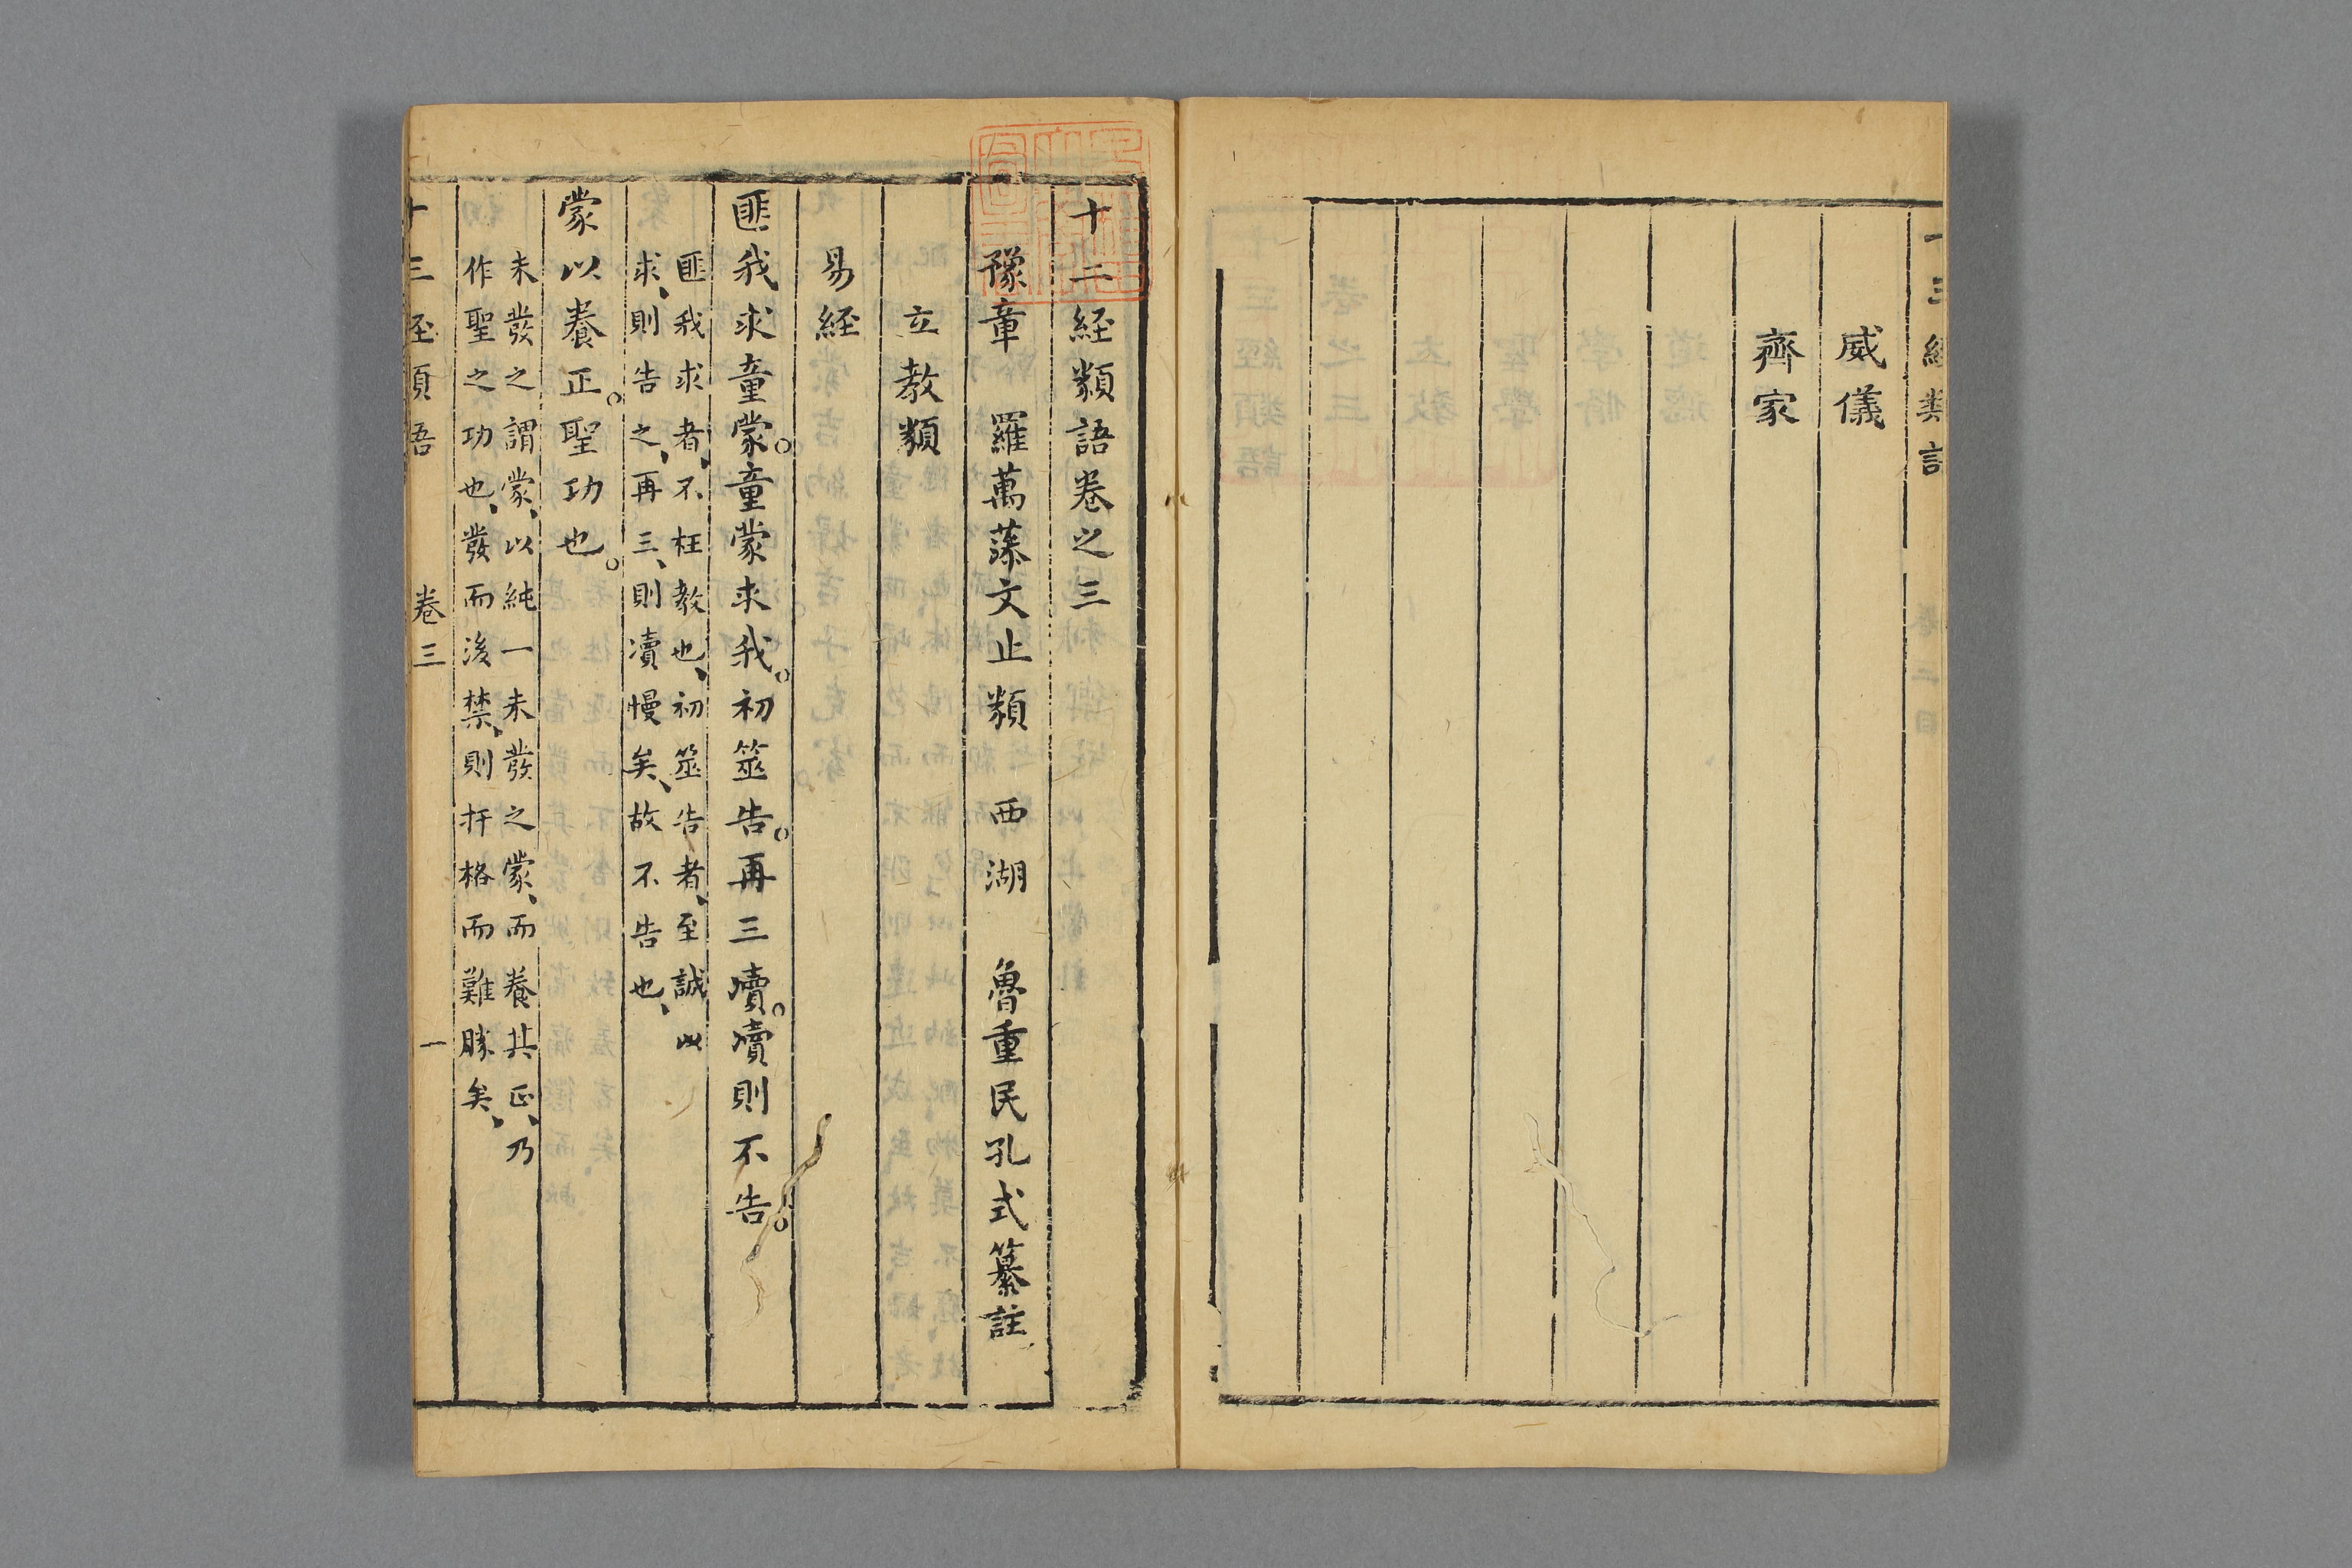 十三經類語
威儀
齊家
十三經類語卷之三
豫章 羅萬藻文止類 西湖 魯重民孔式纂註
立教類
易經
匪我求童蒙。童蒙求我。初筮告。再三瀆。瀆則不告。
匪我求者、不枉教也、初筮告者、至誠以
求、則告之、再三、則瀆慢矣、故不告也、
蒙以養正。聖功也。
未發之謂蒙、以純一未發之蒙、而養其正、乃
作聖之功也、發而後禁、則扞格而難勝矣、
十三經類語 卷三 一